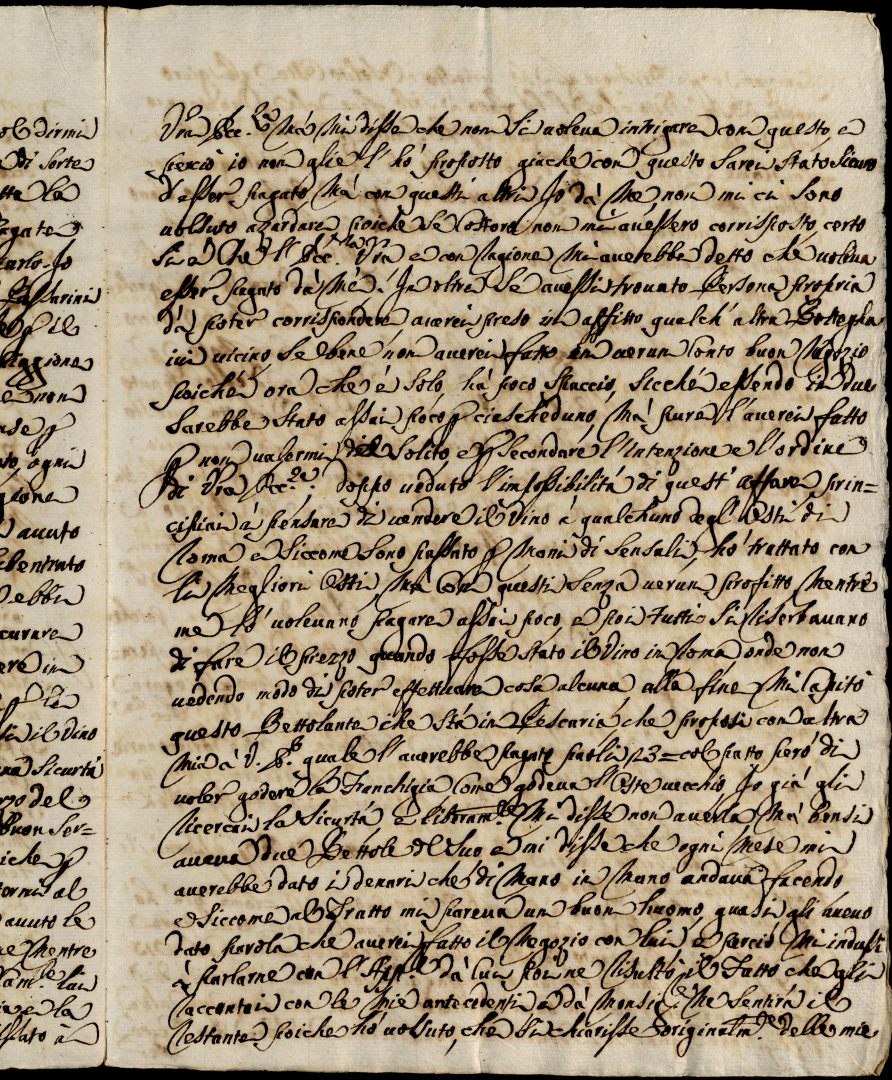 olo dirmi
di sorte
tte la
pagate
Io
Passarini
p il
Ragione
e non
p
ogni
gione
avuto
bentrato
ebbi
curare
ere in
p la
il vino
Sicurtà
zo del
buon Ser=
oiche p
torni al
avuto le
Mentre
la
Vra Ecc.za Mà Mi disse che non Si voleva intrigare con questo, e
perciò io non glie l' hò proposto giache con questo Sarei Stato Sicuro
d' esser pagato, Mà con questi altri Io dà Me non mi ci Sono
volsuto azardare, poiche Se Costoro non mi avessero corrisposto, certo
Si è Che l' Ecc.za Vra e con Ragione Mi averebbe detto che voleva
esser pagato dà Mè. In oltre Se avessi trovato Persona propria
dà poter corrispondere averei preso in affitto qualch' altra Bottegha
ivi vicino, Se bene non averei fatto in verun Conto buon Negozio
poiché ora che è Solo hà poco Spaccio, Sicché essendo in due
Sarebbe Stato assai poco p ciascheduno, Mà pure l' averei fatto
p non valermi del Solito e p Secondare l' Intenzione e l' ordine
di Vra Ecc.za; doppo veduto l' impossibilità di quest' affare prin=
cipiai à pensare di vendere il Vino à qualchuno degl' Osti di
Roma e Siccome Sono passato p Mani di Sensali, hò trattato con
li Megliori Osti, Mà Con questi Senza verun profitto Mentre
me lo volevano pagare assai poco, e poi tutti Si riserbavano
di fare il prezzo quando fosse Stato il Vino in Roma onde non
vedendo modo di poter effettuare cosa alcuna alla fine Mi Capitò
questo Bettolante che Stà in Pescaria che proposi con altra
Mia à V. E. quale l' averebbe pagato paoli 23= col patto però di
voler godere la Franchigia Come godeva l' Oste vecchio, Io già gli
Ricercai la Sicurtà e Mi disse non averla Mà bensi
aveva due Bettole del Suo e mi disse che ogni Mese mi
averebbe dato i denari che di Mano in Mano andava facendo
e Siccome al Tratto mi pareva un buon huomo, quasi gli avevo
dato parola che averei fatto il Negozio con lui e perciò Mi indussi
à parlarne con l' dà cui poi ne Risultò il Fatto che gli
Raccontai con le Mie antecedenti e dà Monsig.e Ne Sentirà il
Restante, poiche hò volsuto, che Si chiarisse originalm.te delle mie